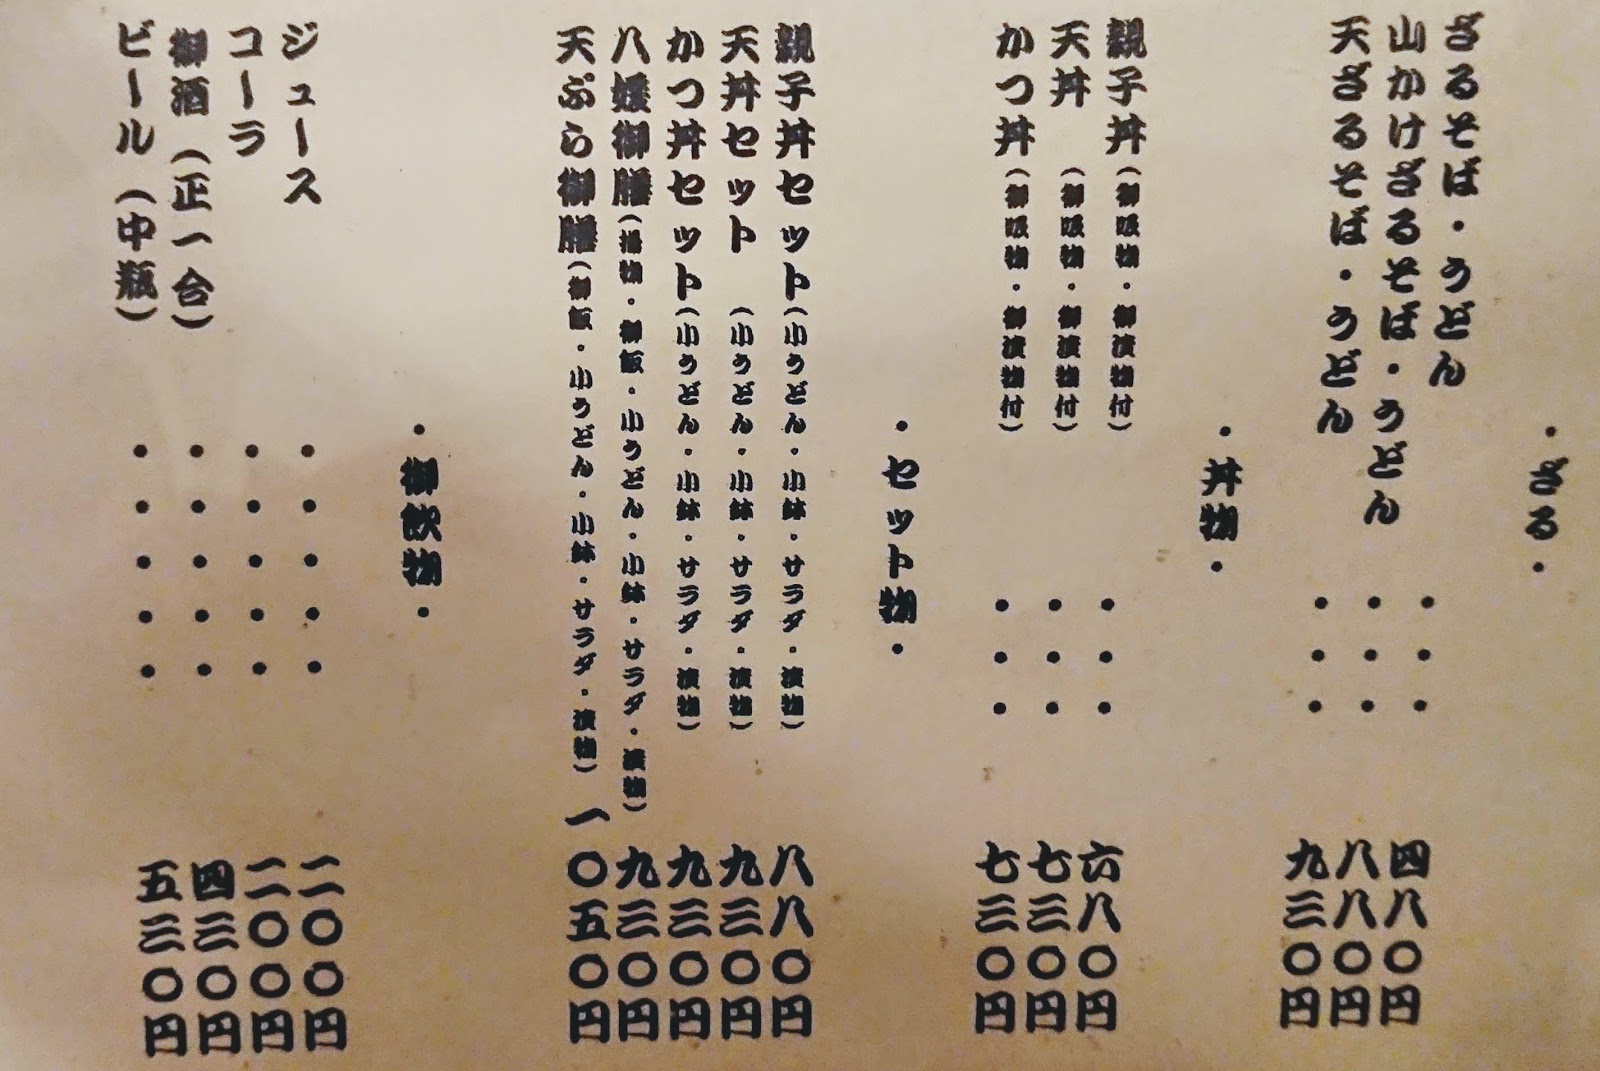 ・ざる・
ざるそば・うどん・・・四八〇円
山かけざるそば・うどん・・・八八〇円
天ざるそば・うどん・・・九三〇円
・丼物・
親子丼(御吸物・御漬物付)・・・六八〇円
天丼(御吸物・御漬物付)・・・七三〇円
かつ丼(御吸物・御漬物付)・・・七三〇円
・セット物・
親子丼セット(小うどん・小鉢・サラダ・漬物)八八〇円
天丼セット(小うどん・小鉢・サラダ・漬物)九三〇円
かつ丼セット(小うどん・小鉢・サラダ・漬物)九三〇円
八媛御膳(揚物・御飯・小うどん・小鉢・サラダ・漬物)九三〇円
天ぷら御膳(御飯・小うどん・小鉢・サラダ・漬物)一〇五〇円
・御飲物・
ジュース・・・・・二〇〇円
コーラ・・・・・二〇〇円
御酒(正一合)・・・・・四三〇円
ビール(中瓶)・・・・・五三〇円